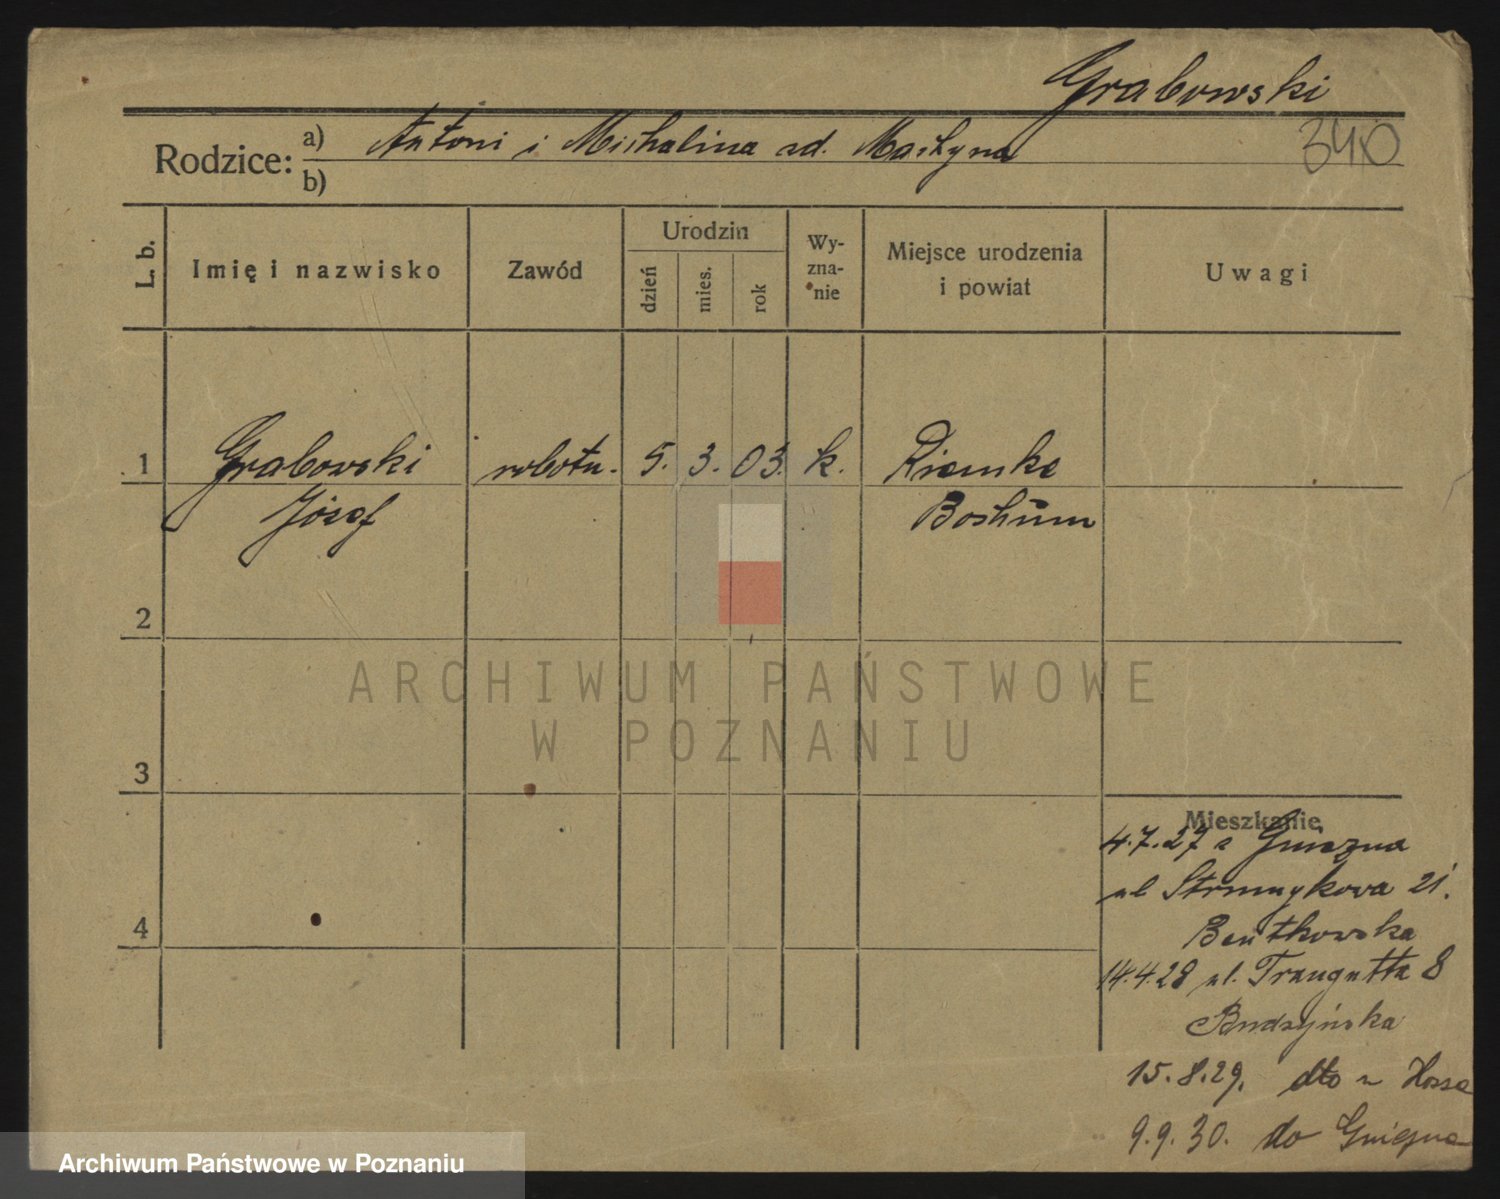 Grabowski
340
Rodzice: a) Antoni i Michalina zd. Maszyna
b)
L. b. Imię i nazwisko Zawód Urodzin dzień mies. rok Wy-zna-nie Miejsce urodzenia i powiat Uwagi
1 Grabowski robotn. 5. 3. 03. k. Riemke
Józef Bochum
2
3
4
Mieszkanie
4.7.27 z Gniezna
ul Strumykowa 21.
Bentkowska
14.4.28 ul. Traugutta 8
Budzyńska
15.8.29. dto u
9.9.30. do Gniezna
ARCHIWUM PAŃSTWOWE
W POZNANIU
Archiwum Państwowe w Poznaniu